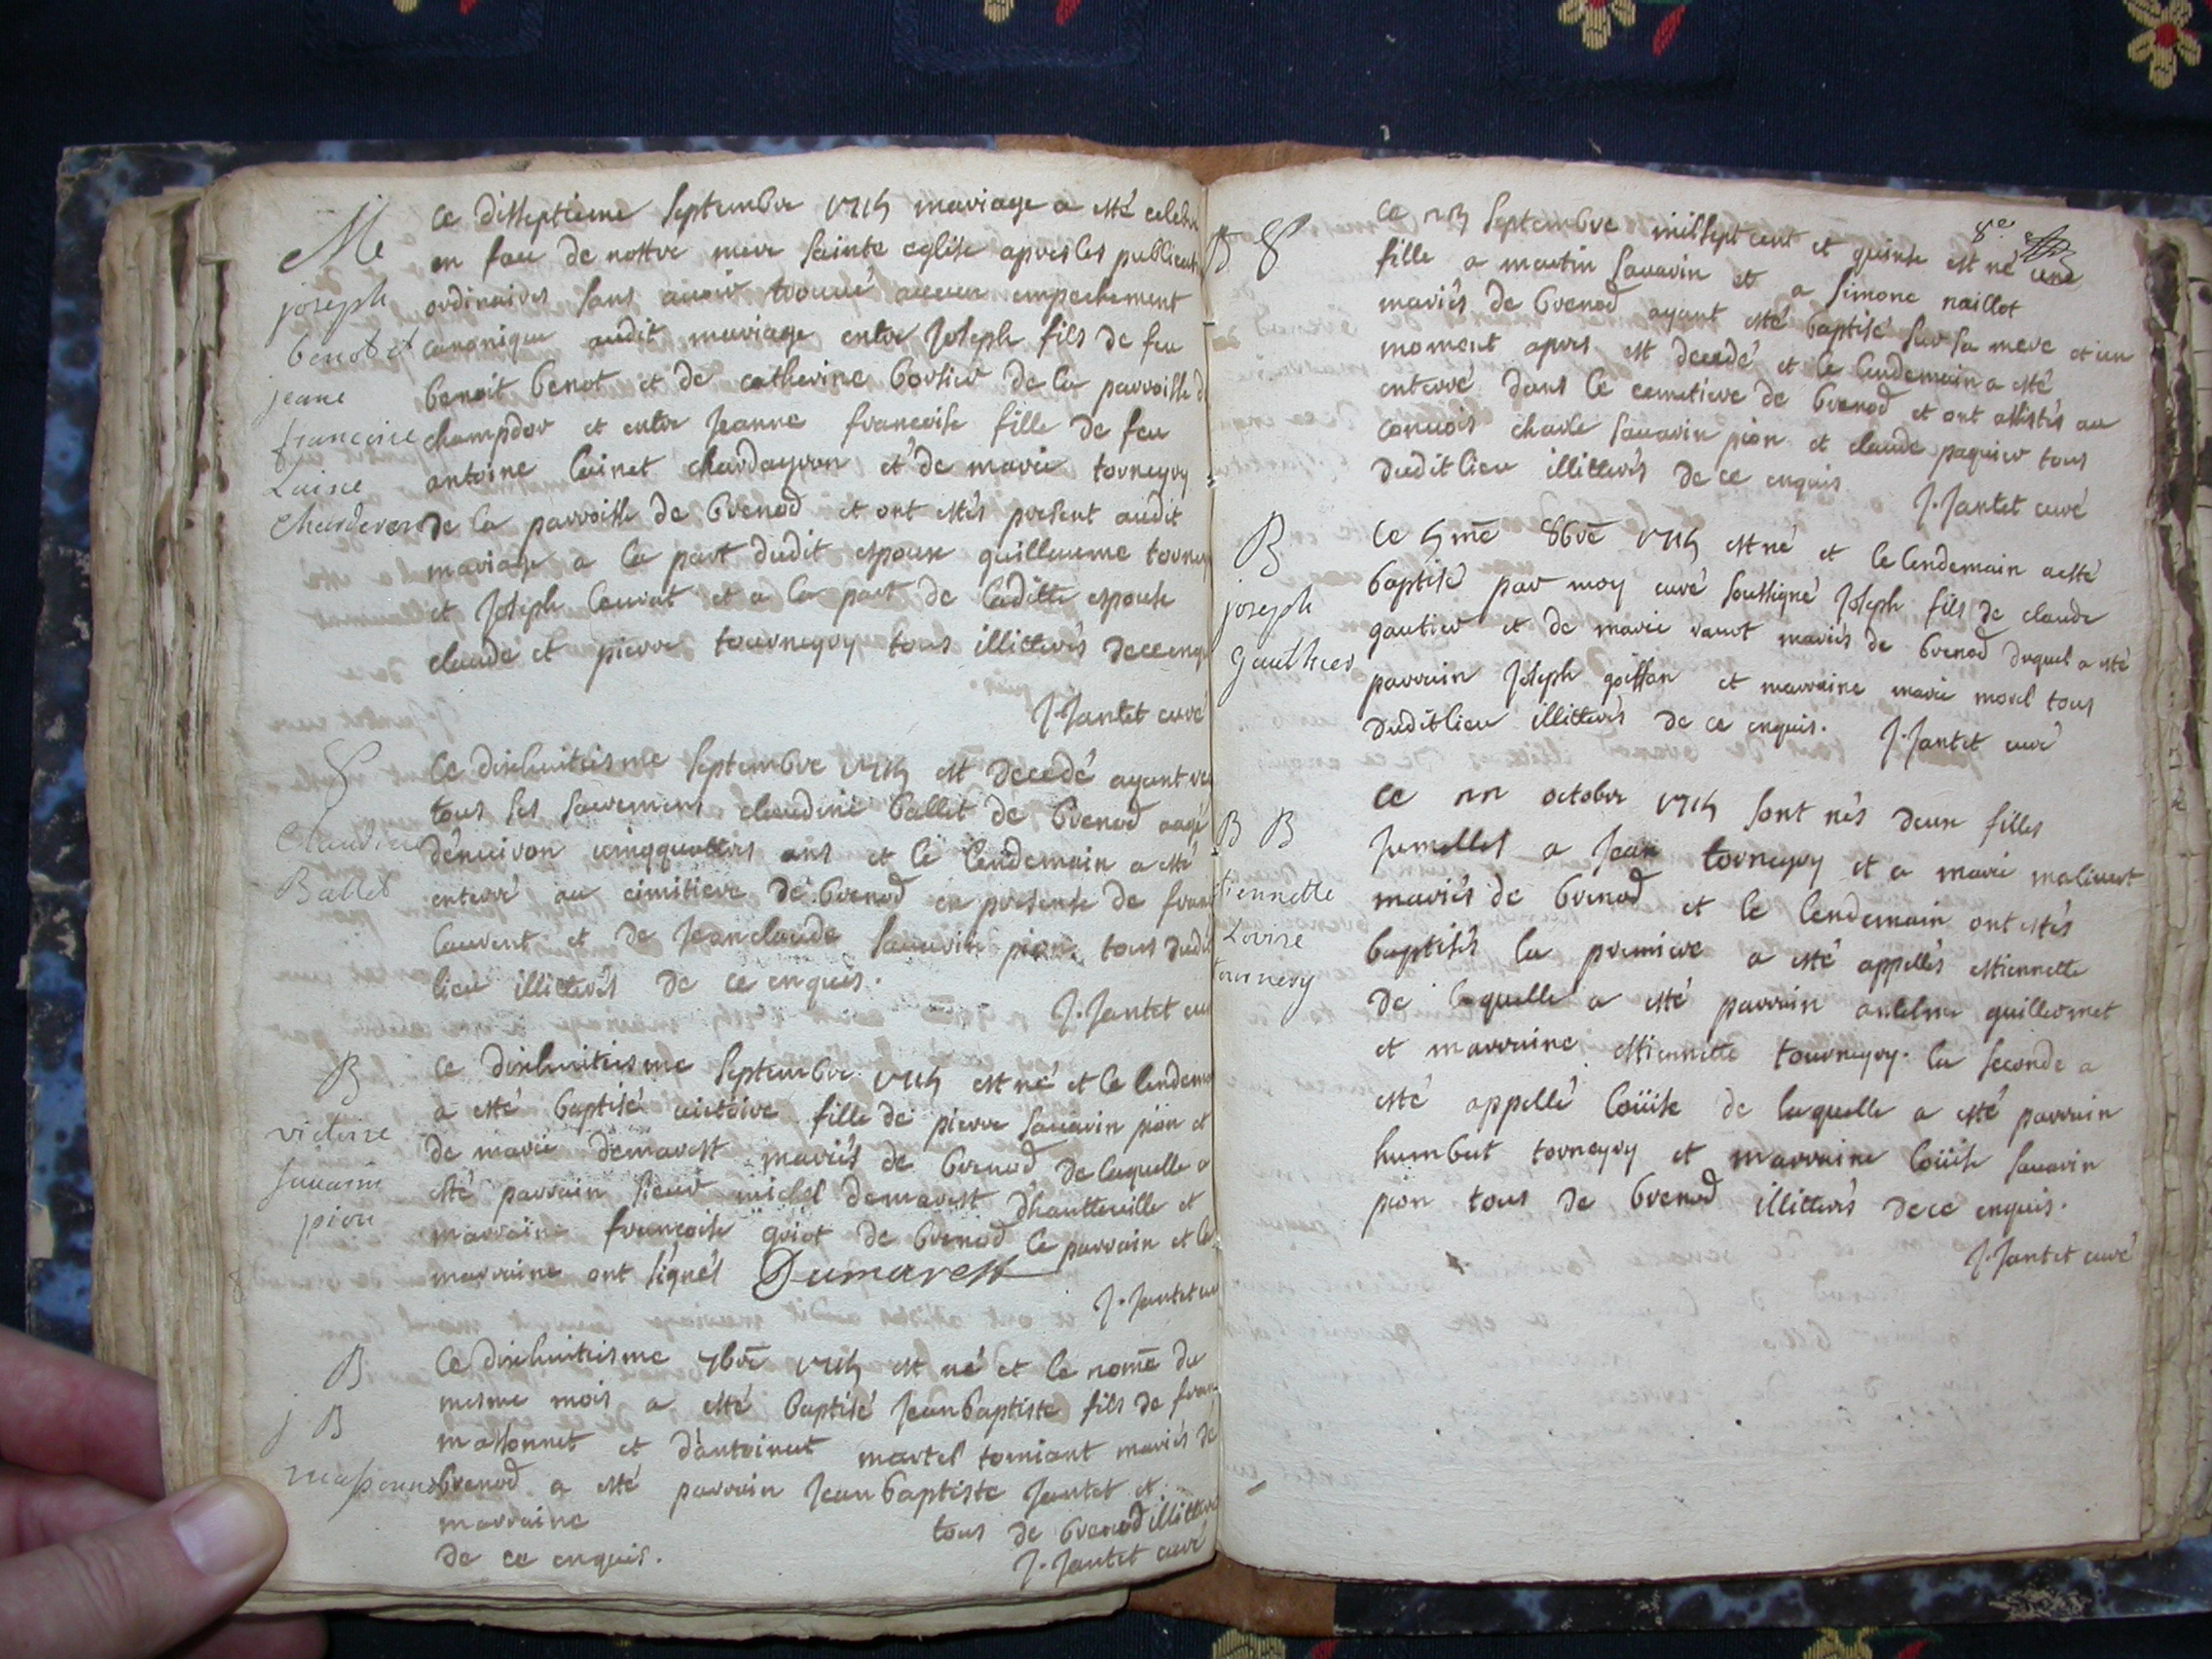 Me
joseph
benot et
jeane
francoise
Luine
Charderon
ce disseptieme septembre 1715 mariage a esté celebr
en face de nostre mere sainte eglise apres les publicati
ordinaires sans avoir trouvé aucun empechement
canonique audit mariage entre Joseph fils de feu
benoit benot et de catherine borsier de la parroisse d
champdor et entre Jeanne francoise fille de feu
antoine luinet chardeyron et de marie torneyry
de la parroisse de brenod et ont estés present audit
mariage a la part dudit espoux guillaume torney
et Joseph leurat et a la part de laditte espouse
claude et pierre tourneyry tous illitterés de ce enqui
J. Jantet curé
S
Claudine
Ballet
Le dixhuitiesme septembre 1715 est decedé ayant re
tous ses sacremens claudine ballet de brenod aagé
d'enuiron cinqquattres ans et le lendemain a esté
enterré au cimitiere de brenod en presense de fran
laurent et de Jeanclaude sauarin pion tous dudit
lieu illitterés de ce enquis.
J. Jantet cur
B
victoire
sauarin
pion
Le dixhuitiesme septembre 1715 est né et le lendema
a esté baptisé victoire fille de pierre sauarin pion et
de marie demarest mariés de brenod de laquelle a
esté parrain sieur michel demarest d'hautteuille et
marraine francoise griot de brenod le parrain et la
marraine ont signés Dumarest
J. Jantet cur
B
j B
massonnet
Le dixhuitiesme 7bre 1715 est né et le nome du
mesme mois a esté baptisé Jeanbaptiste fils de fran
massonnet et d'antoinet martel torniant mariés de
brenod a esté parrain Jeanbaptiste Jantet et
marraine tous de brenod illitteré
de ce enquis.
J. Jantet curé
8e
B S
Ce 23 septembre milsept cent et quinse est né une
fille a martin sauarin et a simone naillot
mariés de brenod ayant esté baptisé sur sa mere et un
moment apres est decedé et le lendemain a esté
enterré dans le cemetiere de brenod et ont assistés au
conuois charle sauarin pion et claude paquier tous
dudit lieu illitterés de ce enquis
J. Jantet curé
B
joseph
gauthier
Le 5me 8bre 1715 est né et le lendemain a esté
baptisé par moy curé soussigné Joseph fils de claude
gautier et de marie rauot mariés de brenod duquel a esté
parrain Joseph goiffon et marraine marie morel tous
dudit lieu illitterés de ce enquis. J. Jantet curé
B B
tiennette
Lovise
tournery
Ce 22 octobre 1715 sont nés deux filles
Jumelles a Jean torneyry et a marie maliuert
mariés de brenod et le lendemain ont estés
baptisés la premiere a esté appellés estiennette
de laquelle a esté parrain antelme guillermet
et marraine estiennette tourneyry. la seconde a
esté appellé loüise de laquelle a esté parrain
humbert torneyry et marraine loüise sauarin
pion tous de brenod illitterés de ce enquis.
J. Jantet curé